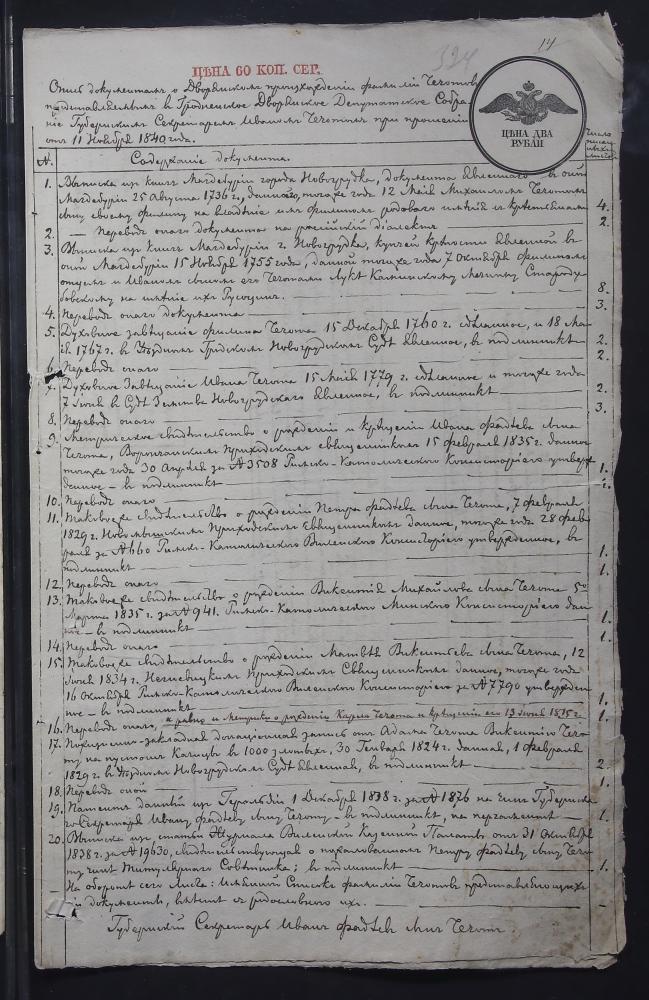 14
324
ЦѢНА 60 КОП. СЕР.
ЦѢНА ДВА
РУБЛИ
Опись документамъ о Дворянскомъ происхожденіи фамиліи Чечотовъ
представляемымъ въ Гродненское Дворянское Депутатское Собра-
ніе Губернскимъ Секретаремъ Иваномъ Чечотомъ при прошеніи
отъ 11 Ноября 1840 года.
№. Содержаніе документа. Число листовъ
1. Выписка изъ книгъ Магдебуріи города Новогрудка, документа явленнаго въ оной
Магдебуріи 25 Августа 1736 г., даннаго, тогожъ года 12 Маія Михаиломъ Чечотомъ
сыну своему Филипу на владѣніе имъ Филипомъ родоваго имѣнія съ крестьянами 4.
2. — Переводъ онаго документа на россійскій діалектъ 2.
3. Выписка изъ книгъ Магдебуріи г. Новогрудка, купчей крѣпости явленной въ
оной Магдебуріи 15 Ноября 1755 года, данной тогожъ года 7 Октября Филипомъ
отцемъ и Иваномъ сыномъ его Чечотами Лукѣ
на имѣніе ихъ 8.
4. Переводъ онаго документа 3.
5. Духовное завѣщаніе Филипа Чечота 15 Декабря 1760 г. сдѣланное, и 18 Ма-
я 1767 г. въ Гродскомъ Новогрудскомъ Судѣ явленное, въ подлинникѣ 2.
6. Переводъ онаго 2.
7. Духовное Завѣщаніе Ивана Чечота 15 Маія 1779 г. сдѣланное и тогожъ года
7 Іюня въ Судѣ Земскомъ Новогрудскомъ явленное, въ подлинникѣ 2.
8. Переводъ онаго 3.
9. Метрическое свидѣтельство о рожденіи и крещеніи Ивана Фадѣева сына
Чечота, Ворончанскимъ Приходскимъ священникомъ 15 февраля 1835 г. данное
тогожъ года 30 Апрѣля за № 3508 Римско-Католическою Консисторіею утверж-
денное — въ подлинникѣ 1.
10. Переводъ онаго 1.
11. Таковоежъ свидѣтельство о рожденіи Петра Фадѣева сына Чечота, 7 февраля
1829 г. Приходскимъ Священникомъ данное, тогожъ года 28 Фев-
раля за № 660 Римско-Католическою Виленскою Консисторіею утвержденное, въ
подлинникѣ 1.
12. Переводъ онаго 1.
13. Таковоежъ свидѣтельство о рожденіи Викентія Михайлова сына Чечота 5го
Марта 1835 г. за № 941. Римско-Католическою Минскою Консисторіею дан-
ное — въ подлинникѣ 1.
14. Переводъ онаго 1.
15. Таковоежъ свидѣтельство о рожденіи Матвѣя Викентьева сына Чечота, 12
Іюня 1834 г. Приходскимъ Священникомъ данное, тогожъ года
16 Октября Римско-Католическою Виленскою Консисторіею за № 7790 утвержден-
ное — въ подлинникѣ 1.
16. Переводъ онаго, а равно и Метрика о рожденіи Карла Чечота и крещеніи его 13 Іюня 1815 г. 1.
17. запись отъ Адама Чечота Викентію Чечо-
ту на въ 1000 злотыхъ, 30 Генваря 1824 г. данная, 1 февраля
1829 г. въ Новогрудскомъ Судѣ явленная, въ подлинникѣ 2.
18. Переводъ оной 1.
19. Патентъ данный изъ Герольдіи 1 Декабря 1838 г. за № 1876 на чинъ Губернска-
го Секретаря Ивану Фадѣеву сыну Чечоту — въ подлинникѣ, на пергаментѣ 1.
20. Выписка изъ статьи Журнала Виленской Казенной Палаты отъ 31 Октября
1838 г. за № 19630, свидѣтельствующая о пожалованіи Петру Фадѣеву сыну Чечо-
ту чина Титулярнаго Совѣтника; въ подлинникѣ 1.
— На оборотѣ сего листа: Именной Списокъ фамиліи Чечотовъ представляющихъ
документы, вмѣстѣ съ родословною ихъ.
Губернскій Секретарь Иванъ Фадѣевъ сынъ Чечотъ.